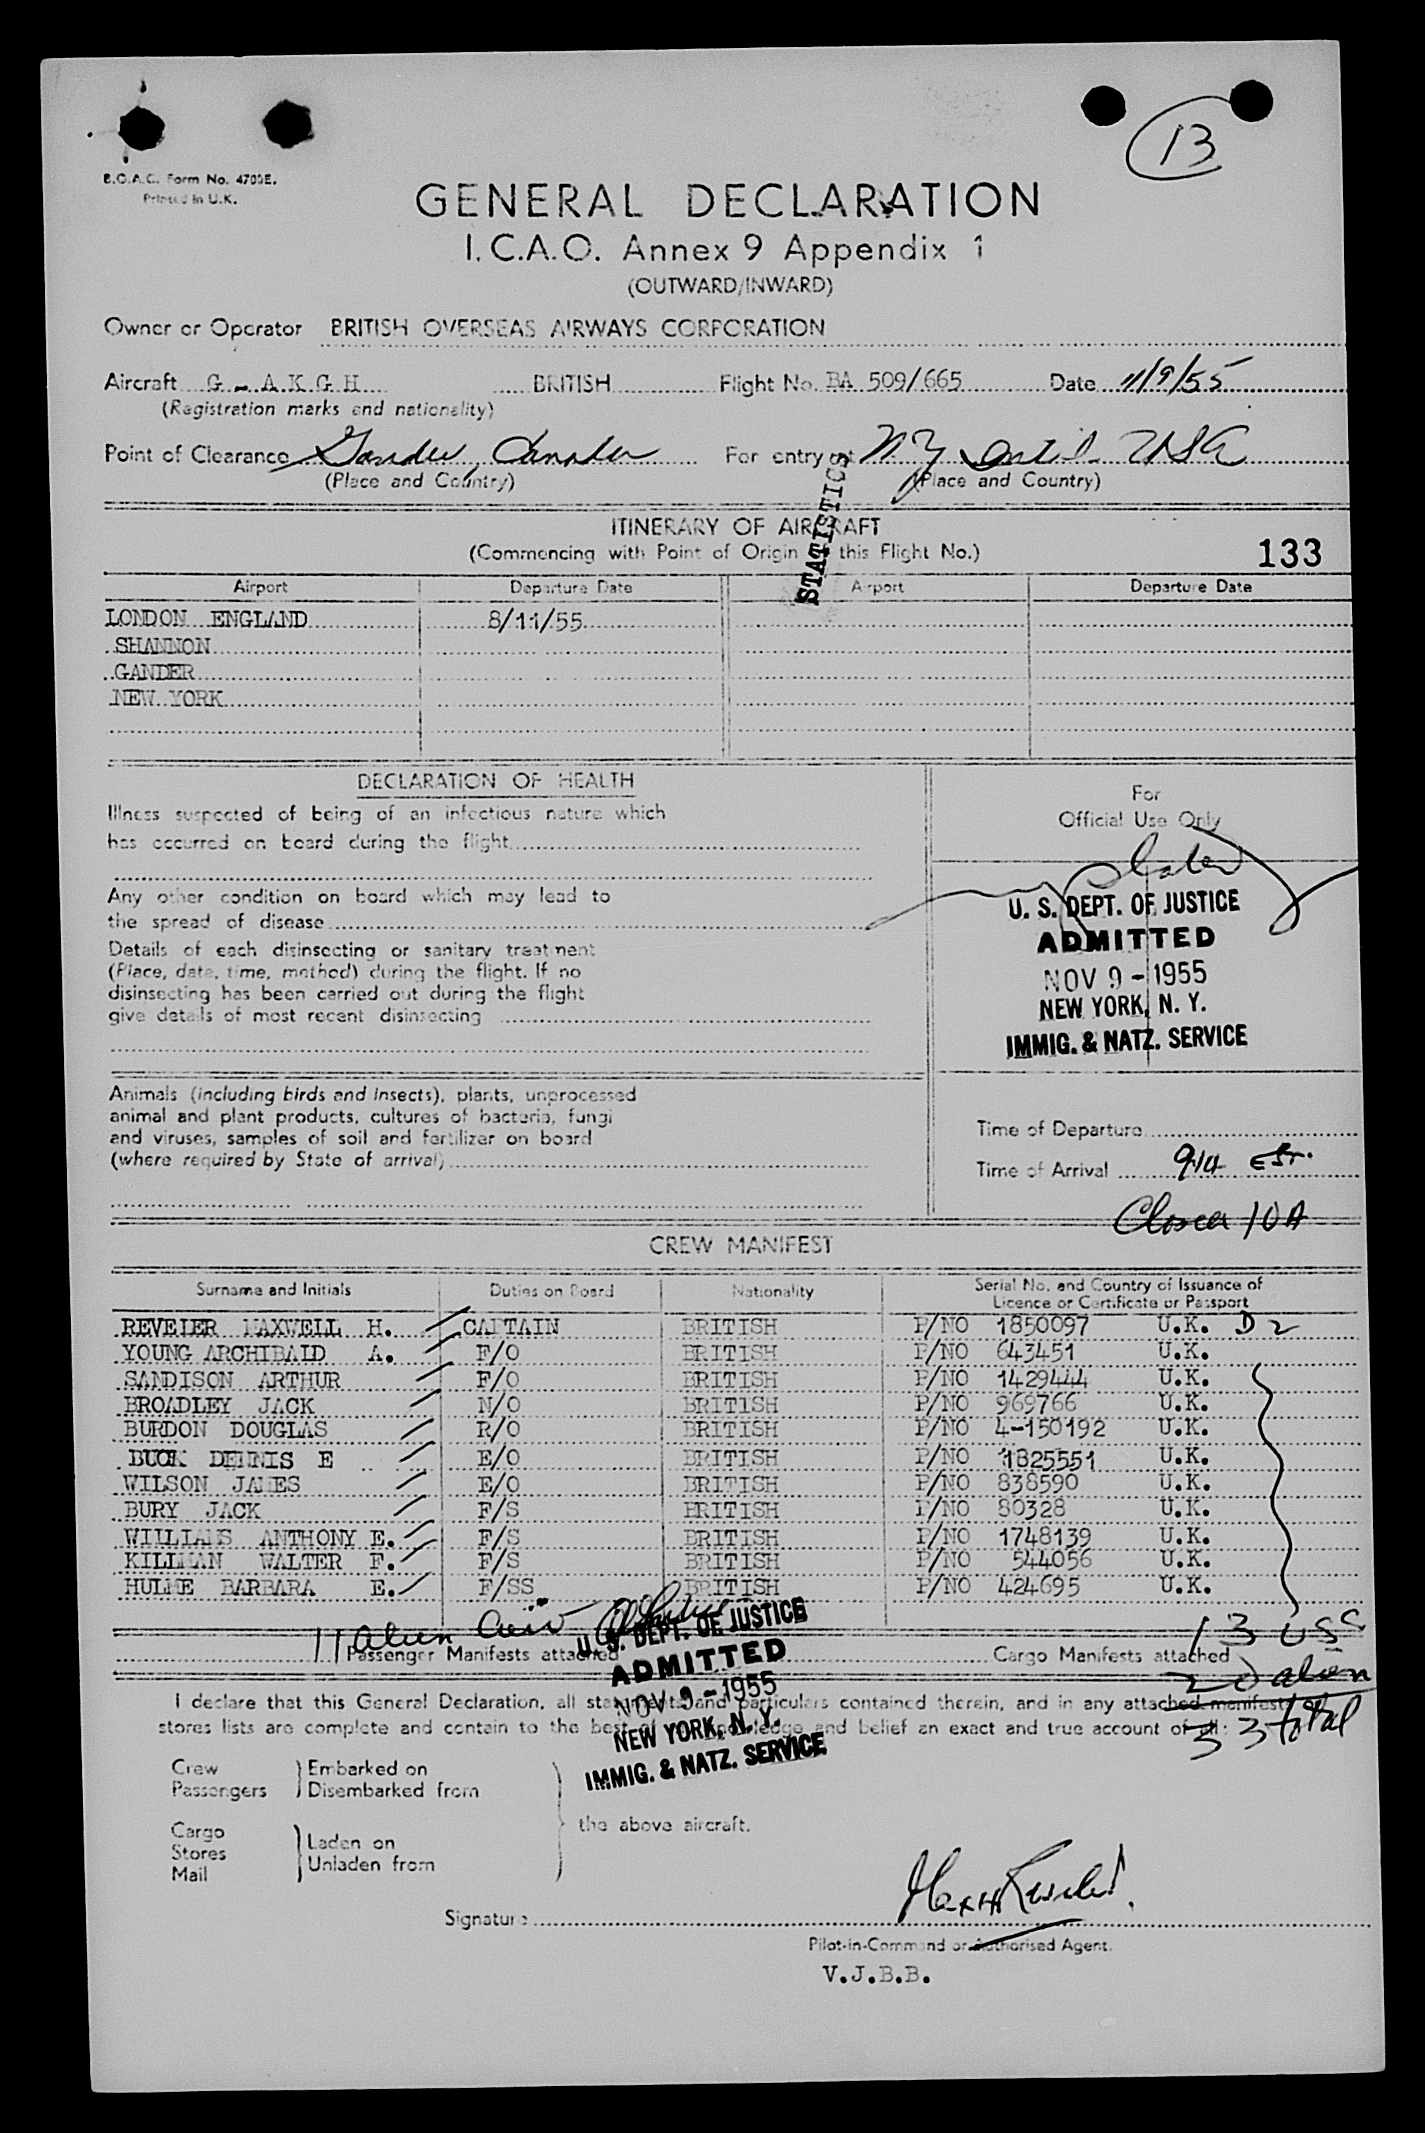 13
B.O.A.C. Form No. 4705E.
Printed in U.K.
GENERAL DECLARATION
I.C.A.O. Annex 9 Appendix 1
(OUTWARD/INWARD)
Owner or Operator BRITISH OVERSEAS AIRWAYS CORPORATION
Aircraft G - A K G H BRITISH Flight No. BA 509/665 Date 11/9/55
(Registration marks and nationality)
Point of Clearance Gander Canada For entry at NY USA
(Place and Country) (Place and Country)
STATISTICS
ITINERARY OF AIRCRAFT
(Commencing with Point of Origin of this Flight No.)
133
Airport Departure Date Airport Departure Date
LONDON ENGLAND 8/11/55
SHANNON
GANDER
NEW YORK
DECLARATION OF HEALTH
Illness suspected of being of an infectious nature which
has occurred on board during the flight
Any other condition on board which may lead to
the spread of disease
Details of each disinsecting or sanitary treatment
(Place, date, time, method) during the flight. If no
disinsecting has been carried out during the flight
give details of most recent disinsecting
For
Official Use Only
U. S. DEPT. OF JUSTICE
ADMITTED
NOV 9 - 1955
NEW YORK, N. Y.
IMMIG. & NATZ. SERVICE
Animals (including birds and insects), plants, unprocessed
animal and plant products, cultures of bacteria, fungi
and viruses, samples of soil and fertilizer on board
(where required by State of arrival)
Time of Departure
Time of Arrival 914 EST.
Closed 10A
CREW MANIFEST
Surname and Initials Duties on Board Nationality Serial No. and Country of Issuance of
Licence or Certificate or Passport
REVEIER MAXWELL H. CAPTAIN BRITISH P/NO 1850097 U.K. D 2
YOUNG ARCHIBALD A. F/O BRITISH P/NO 643451 U.K.
SANDISON ARTHUR F/O BRITISH P/NO 1429444 U.K.
BROADLEY JACK N/O BRITISH P/NO 969766 U.K.
BURDON DOUGLAS R/O BRITISH P/NO 4-150192 U.K.
BUCK DENNIS E E/O BRITISH P/NO 1825551 U.K.
WILSON JAMES E/O BRITISH P/NO 838590 U.K.
BURY JACK F/S BRITISH P/NO 80328 U.K.
WILLIAMS ANTHONY E. F/S BRITISH P/NO 1748139 U.K.
KILLMAN WALTER F. F/S BRITISH P/NO 544056 U.K.
HULME BARBARA E. F/SS BRITISH P/NO 424695 U.K.
11 alien crew
13 USC
Passenger Manifests attached Cargo Manifests attached
20 alien
33 total
U. S. DEPT. OF JUSTICE
ADMITTED
NOV 9 - 1955
NEW YORK, N. Y.
IMMIG. & NATZ. SERVICE
I declare that this General Declaration, all statements and particulars contained therein, and in any attached manifests,
stores lists are complete and contain to the best of my knowledge and belief an exact and true account of all:
Crew Embarked on
Passengers Disembarked from
the above aircraft.
Cargo Laden on
Stores Unladen from
Mail
Signature
Pilot-in-Command or Authorised Agent.
V.J.B.B.